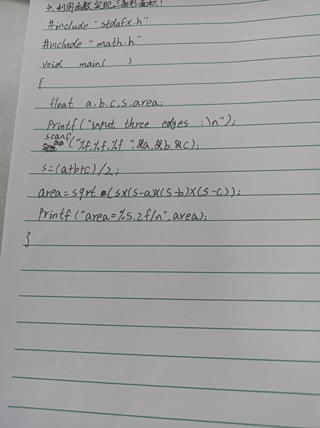 4. 利用函数实现三角形面积!
#include "stdafx.h"
#include "math.h"
void main( )
{
float a.b.c.s.area;
Printf("input three edges :\n");
scanf("%f,%f,%f",&a,&b,&c);
s=(a+b+c)/2;
area=sqrt(s×(s-a)×(s-b)×(s-c));
Printf("area=%5.2f/n",area);
}